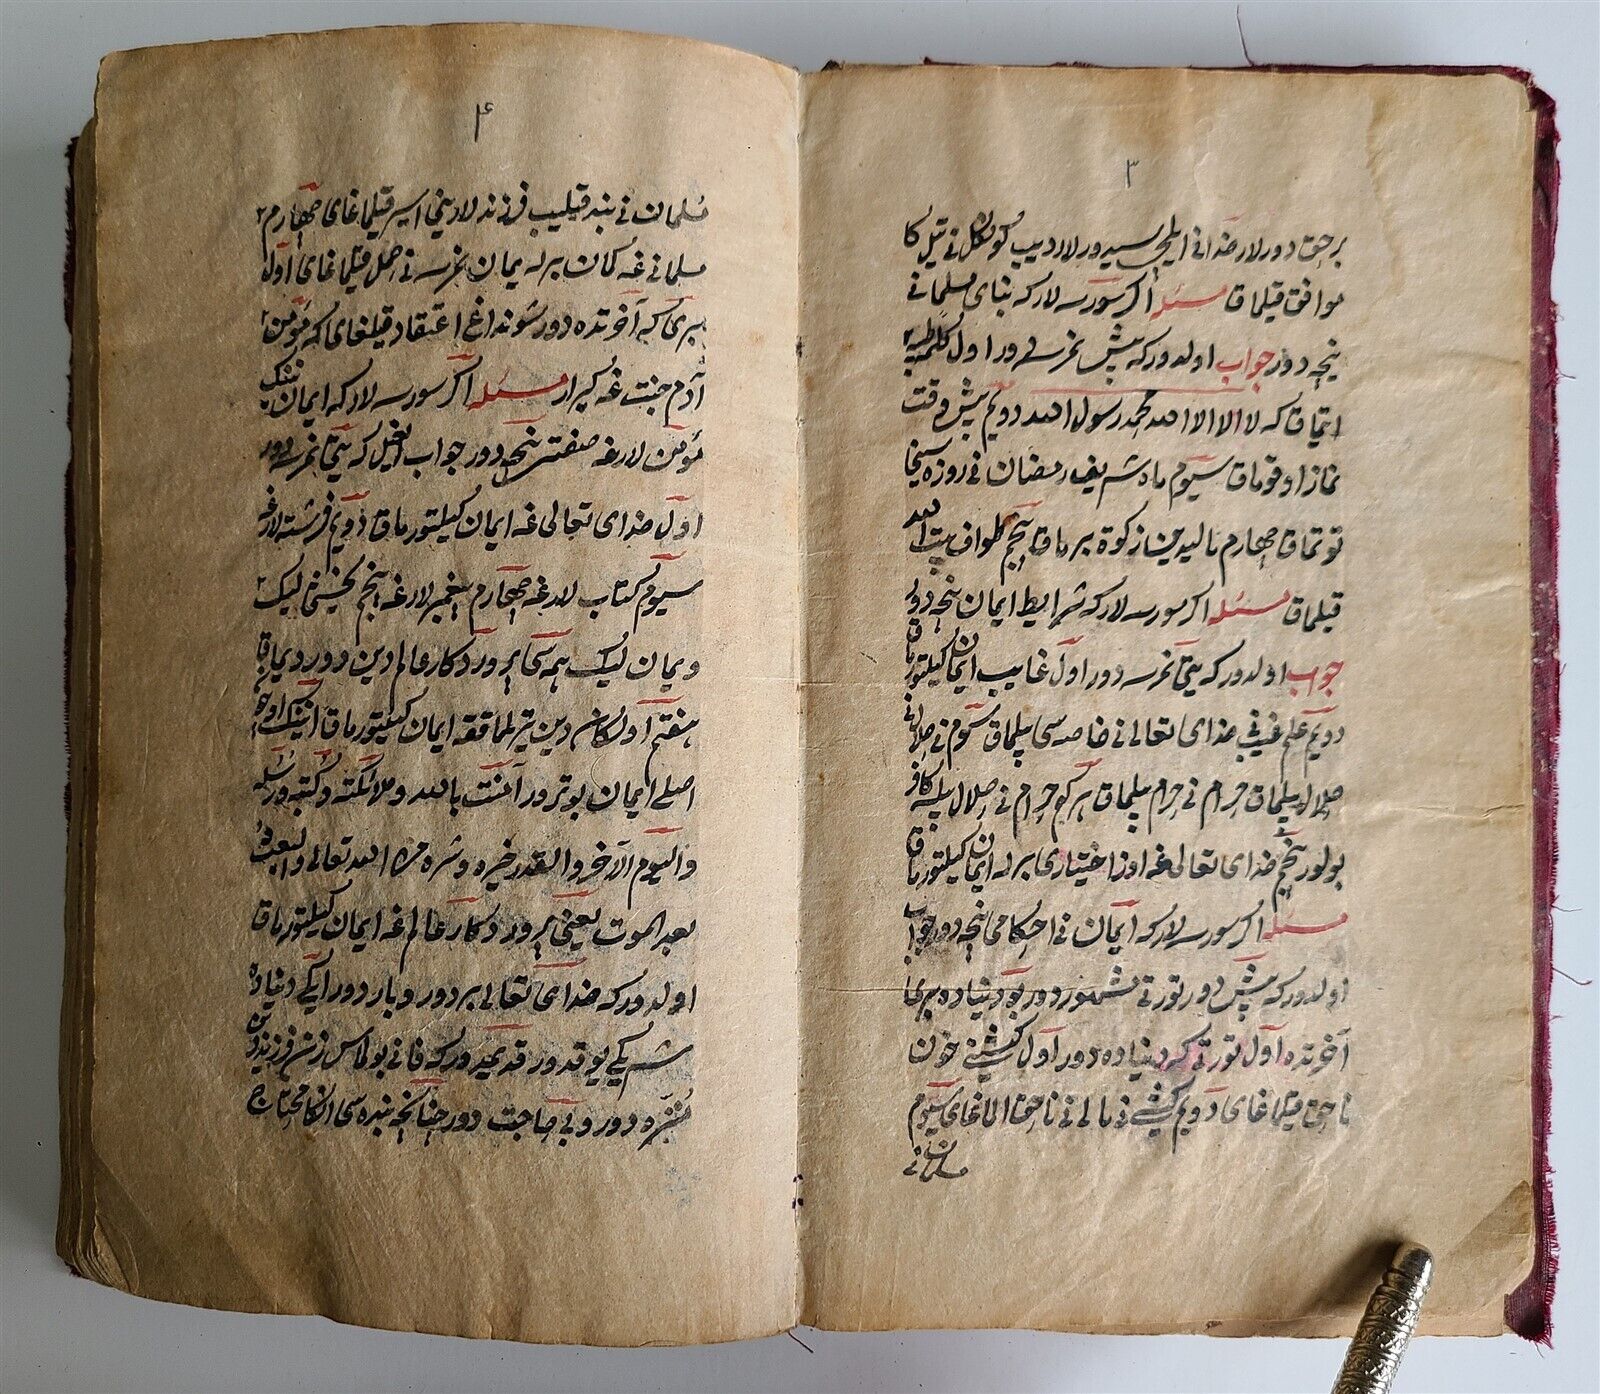 ۳
برحق دورلار خدانی ایلچی سیدورلار دیب کونکل نی تیل کا
موافق قیلماق مسئله اکر سورسه لارکه بنای مسلمانی
نیچه دور جواب اولدورکه بیش نمرسه دور اول کلمه طیبه
ایتماق که لا اله الا الله محمد رسول الله دویم بیش وقت
نماز اوقوماق سیوم ماه شریف رمضان نی روزه سینی
توتماق چهارم مالیدین زکوة بیرماق پنجم طواف بیت الله
قیلماق مسئله اکر سورسه لارکه شرایط ایمان نیچه دور
جواب اولدورکه یتی نمرسه دور اول غایب ایمان کیلتورماق
دویم علم غیب نی خدای تعالی نی خاصه سی بیلماق سیوم نی حلال نی
حلال بیلماق حرام نی حرام بیلماق هر کم حرام نی حلال بیلسه کافر
بولور پنجم خدای تعالی غه اوز اختیاری برله ایمان کیلتورماق
مسئله اکر سورسه لارکه ایمان نی احکامی نیچه دور جواب
اولدورکه بیش دور تورتی مشهور دور بو دنیاده بیری
آخرتده اول تورتی که دنیاده دور اول کیشی نی خون
ناحق قیلماغای دویم کیشی نی مالی نی ناحق الماغای سیوم
مسلمان نی
۴
مسلمان نی بند قیلیب فرزندلارینی اسیر قیلماغای چهارم
مسلمانی غه کمان برله یمان نمرسه نی حمل قیلماغای اول
بیری که آخرتده دور شونداغ اعتقاد قیلغای که مؤمن
آدم جنت غه کیرار مسئله اکر سورسه لارکه ایمان نینک
مؤمن لارغه صفتی نیچه دور جواب ایغیل که یتی نمرسه دور
اول خدای تعالی غه ایمان کیلتورماق دویم فرشته لارغه
سیوم کتاب لارغه چهارم پیغمبرلارغه پنجم یخشی لیک
و یمان لیک همه سی پروردکار عالم دین دور دیماق
هفتم اولکان دین تیریلماققه ایمان کیلتورماق انینک اوچون
اصلی ایمان بوترور آمنت بالله وملائکته وکتبه ورسله
والیوم الآخر والقدر خیره وشره من الله تعالی والبعث
بعد الموت یعنی پروردکار عالم غه ایمان کیلتورماق
اولدورکه خدای تعالی بر دور و بار دور ایکی دنیاده
شریکی یوقدور قدیمدورکه فانی بولماس زن فرزنددین
منزه دور و بی حاجت دور چنانچه بنده سی انکا محتاج